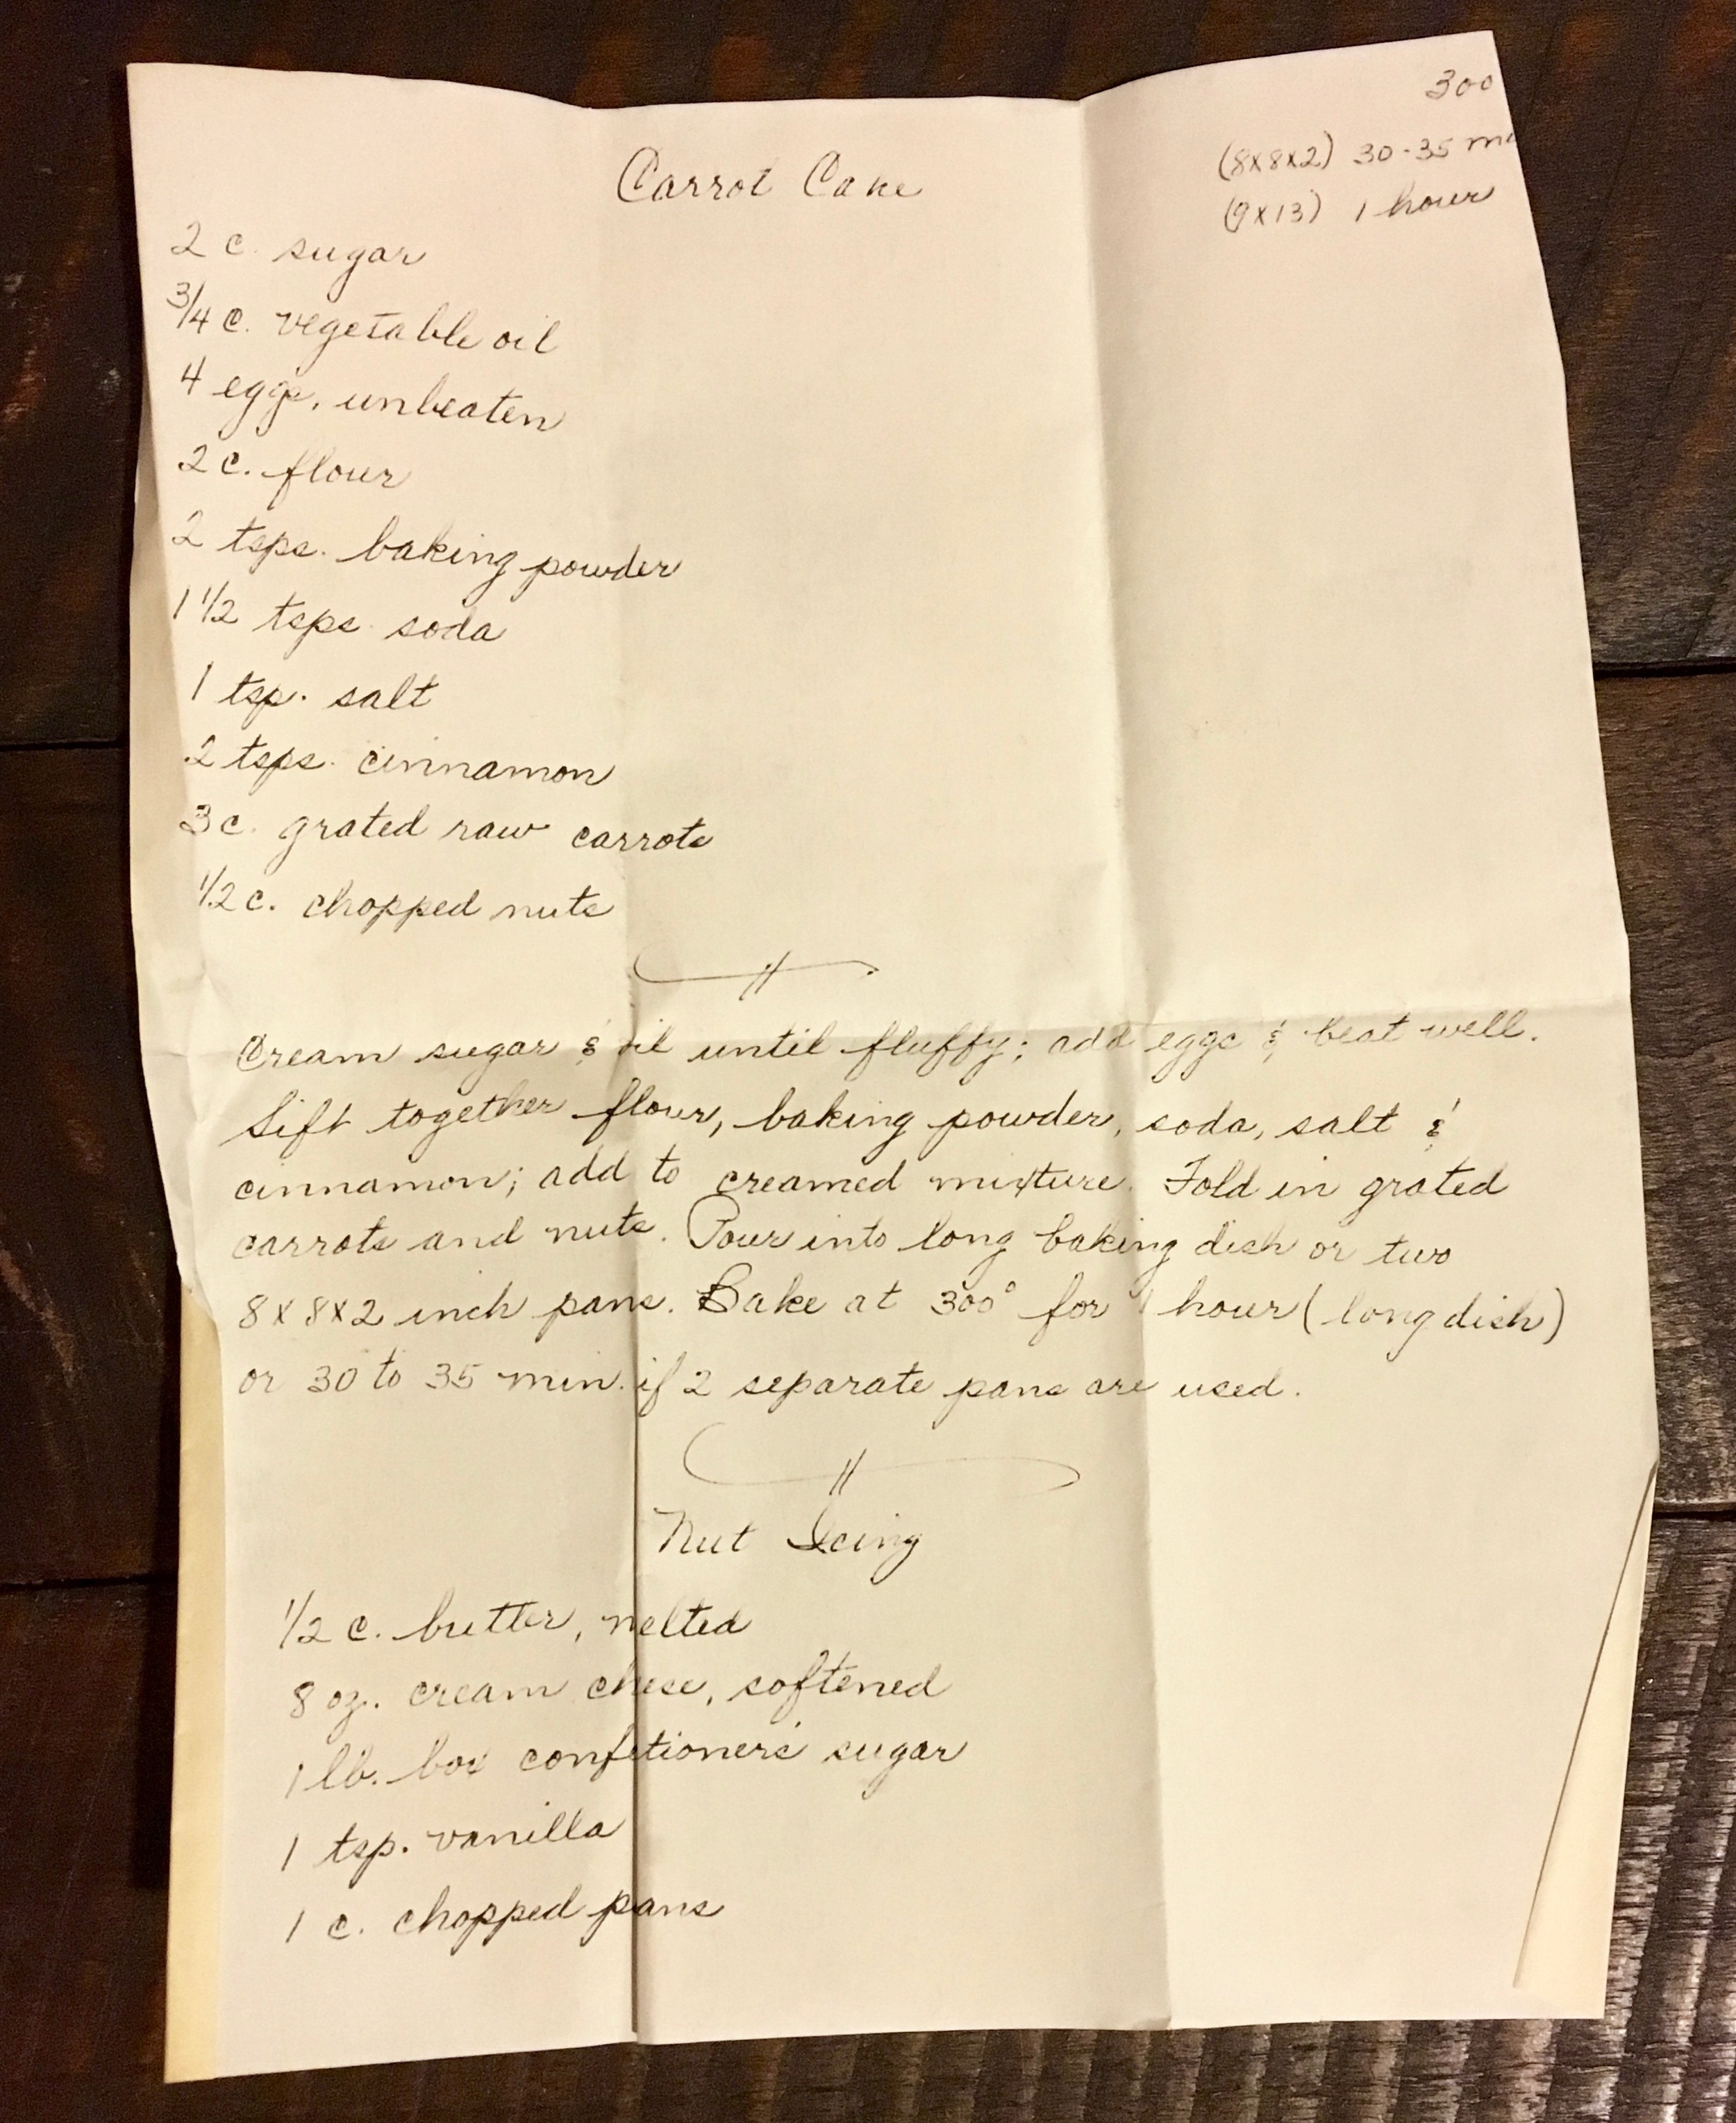 300
(8x8x2) 30-35
(9x13) 1 hour
Carrot Cake
2 c. sugar
3/4 c. vegetable oil
4 eggs, unbeaten
2 c. flour
2 tsps. baking powder
1 1/2 tsps. soda
1 tsp. salt
2 tsps. cinnamon
3 c. grated raw carrots
1/2 c. chopped nuts
Cream sugar & oil until fluffy; add eggs & beat well.
Sift together flour, baking powder, soda, salt &
cinnamon; add to creamed mixture. Fold in grated
carrots and nuts. Pour into long baking dish or two
8x8x2 inch pans. Bake at 300° for 1 hour (long dish)
or 30 to 35 min. if 2 separate pans are used.
Nut Icing
1/2 c. butter, melted
8 oz. cream cheese, softened
1 lb. box confetioner's sugar
1 tsp. vanilla
1 c. chopped